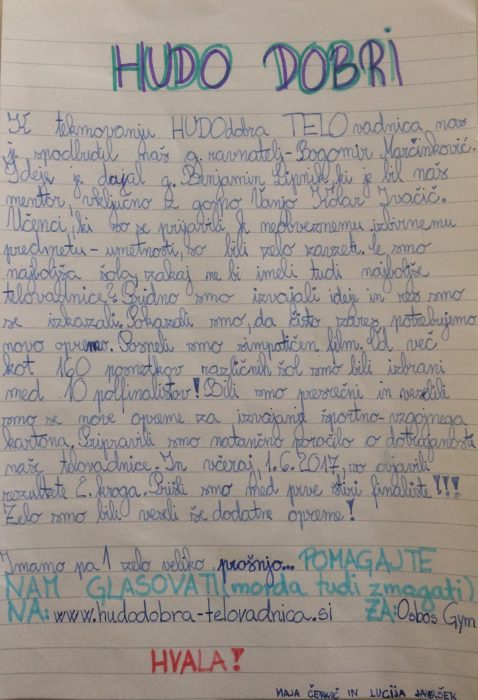 HUDO DOBRI
K tekmovanju HUDOdobra TELOvadnica nas
je spodbudil naš g. ravnatelj - Bogomir Marčinković.
Ideje je dajal g. Benjamin Lipnik, ki je bil naš
mentor, vključno z gospo Vanjo Kidar Ivačič.
Učenci, ki so se prijavili k neobveznemu izbirnemu
predmetu - umetnosti, so bili zelo zavzeti. Če smo
najboljša šola, zakaj ne bi imeli tudi najboljše
telovadnice? Pridno smo izvajali ideje in res smo
se izkazali. Pokazali smo, da čisto zares potrebujemo
novo opremo. Posneli smo simpatičen film. Od več
kot 160 posnetkov različnih šol smo bili izbrani
med 10 polfinalistov! Bili smo presrečni in veselili
smo se nove opreme za izvajanje športno-vzgojnega
kartona. Pripravili smo natančno poročilo o dotrajanosti
naše telovadnice. In včeraj, 1.6.2017, so objavili
rezultate 2. kroga. Prišli smo med prve štiri finaliste!!!
Zelo smo bili veseli še dodatne opreme!
Imamo pa 1 zelo veliko prošnjo... POMAGAJTE
NAM GLASOVATI (morda tudi zmagati)
NA: www.hudodobra-telovadnica.si ZA: Osbos Gym
HVALA!
MAJA IN LUCIJA